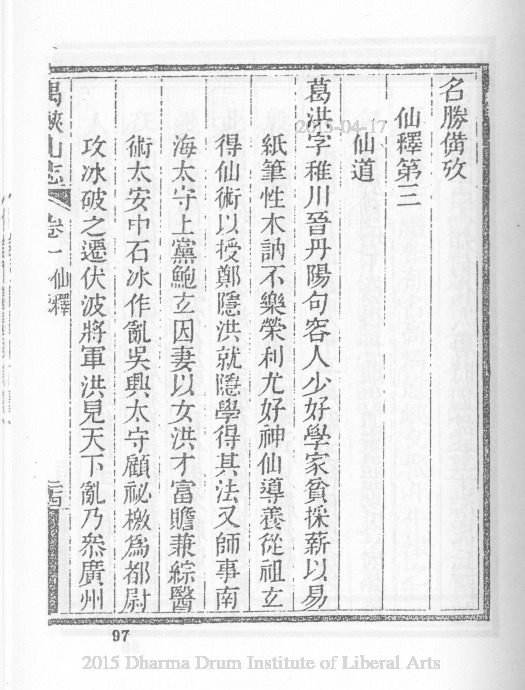 名勝備攷
仙釋第三
仙道
葛洪字稚川晉丹陽句容人少好學家貧採薪以易
紙筆性木訥不樂榮利尤好神仙導養從祖玄
得仙術以授鄭隱洪就隱學得其法又師事南
海太守上黨鮑玄因妻以女洪才富贍兼綜醫
術太安中石冰作亂吳興太守顧祕檄爲都尉
攻冰破之遷伏波將軍洪見天下亂乃叅廣州
禺峽山志 卷一 仙釋
97
2015-04-17
2015 Dharma Drum Institute of Liberal Arts